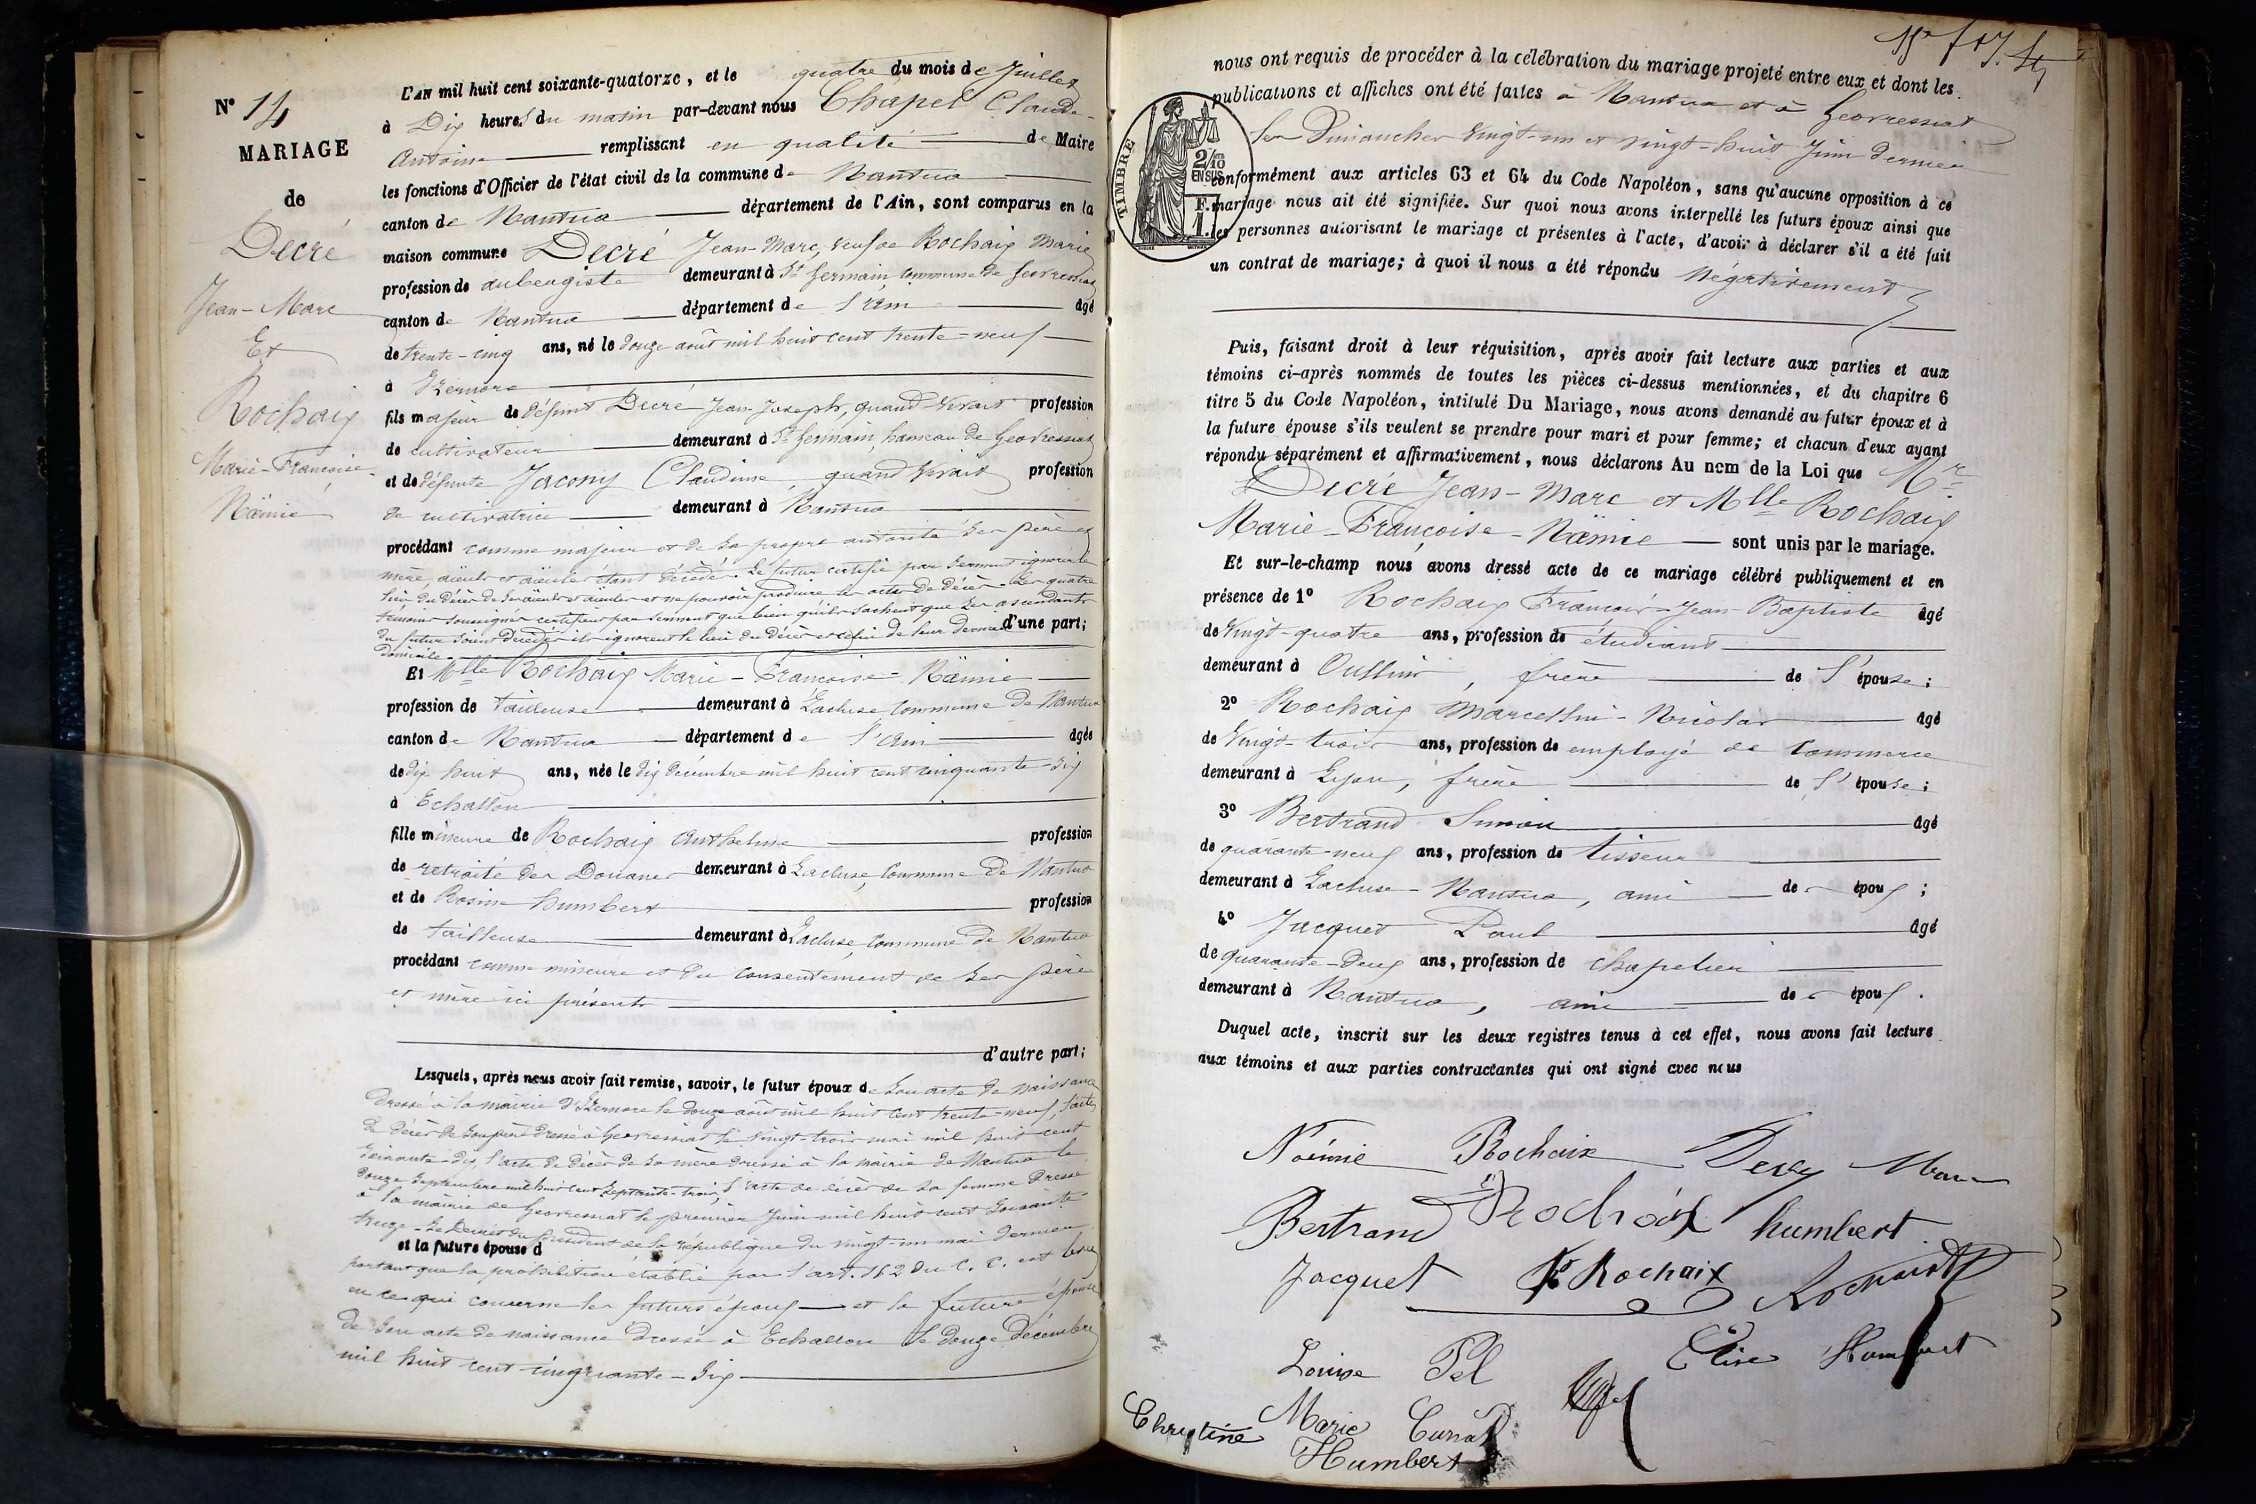 N° 14
MARIAGE
de
Decré
Jean-Marc
Et
Rochaix
Marie-Françoise
Näemie
L'AN mil huit cent soixante-quatorze, et le quatre du mois de Juillet
à Dix heures du matin par-devant nous Chapel Claude-
Antoine remplissant en qualité de Maire
les fonctions d'Officier de l'état civil de la commune de Nantua
canton de Nantua département de l'Ain, sont comparus en la
maison commune Decré Jean-Marc, veuf de Rochaix Marie
profession de aubergiste demeurant à St Germain, commune de Géovressiat
canton de Nantua département de l'Ain âgé
de trente-cinq ans, né le douze août mil huit cent trente-neuf
à Izernore
fils majeur de défunt Decré Jean-Joseph, quand vivait profession
de cultivateur demeurant à St Germain, hameau de Géovressiat
et de défunte Jacony Claudine, quand vivait profession
de cultivatrice demeurant à Nantua
procédant comme majeur et de sa propre autorité ses père et
mère, aïeuls et aïeules étant décédés. Le futur certifie par serment ignorer le
lieu du décès de ses aïeuls et aïeules et ne pouvoir produire les actes de décès. Les quatre
témoins soussignés certifient par serment que bien qu'ils sachent que les ascendants
du futur soient décédés ils ignorent le lieu du décès et celui de leur dernier d'une part;
domicile
Et Mlle Rochaix Marie-Françoise-Näemie
profession de tailleuse demeurant à Lacluse commune de Nantua
canton de Nantua département de l'Ain âgée
de dix huit ans, née le dix décembre mil huit cent cinquante-six
à Echallon
fille mineure de Rochaix Anthelme profession
de retraité des Douanes demeurant à Lacluse, commune de Nantua
et de Rosine humbert profession
de tailleuse demeurant à Lacluse, commune de Nantua
procédant comme mineure et du consentement de ses père
et mère ici présents
d'autre part;
Lesquels, après nous avoir fait remise, savoir, le futur époux de son acte de naissance
dressé à la mairie d'Izernore le douze août mil huit cent trente-neuf, l'acte
de décès de son père dressé à Géovressiat le vingt-trois mai mil huit cent
soixante-dix, l'acte de décès de sa mère dressé à la mairie de Nantua le
douze septembre mil huit cent septante-trois, l'acte de décès de sa femme dressé
à la mairie de Géovressiat le premier juin mil huit cent soixante-
treize - Le Décret du président de la République du vingt-un mai dernier
et la future épouse d
portant que la prohibition établie par l'art. 162 du C. C. est levée
en ce qui concerne les futurs époux et la future épouse
de son acte de naissance dressé à Echallon le douze décembre
mil huit cent cinquante-six
nous ont requis de procéder à la célébration du mariage projeté entre eux et dont les
publications et affiches ont été faites à Nantua et à Géovressiat
les Dimanches vingt-un et vingt-huit Juin dernier
TIMBRE
2/10
EN SUS
F.
1.
conformément aux articles 63 et 64 du Code Napoléon, sans qu'aucune opposition à ce
mariage nous ait été signifiée. Sur quoi nous avons interpellé les futurs époux ainsi que
les personnes autorisant le mariage et présentes à l'acte, d'avoir à déclarer s'il a été fait
un contrat de mariage; à quoi il nous a été répondu Négativement
Puis, faisant droit à leur réquisition, après avoir fait lecture aux parties et aux
témoins ci-après nommés de toutes les pièces ci-dessus mentionnées, et du chapitre 6
titre 5 du Code Napoléon, intitulé Du Mariage, nous avons demandé au futur époux et à
la future épouse s'ils veulent se prendre pour mari et pour femme; et chacun d'eux ayant
répondu séparément et affirmativement, nous déclarons Au nom de la Loi que Mr
Decré Jean-Marc et Mlle Rochaix
Marie-Françoise-Näemie sont unis par le mariage.
Et sur-le-champ nous avons dressé acte de ce mariage célébré publiquement et en
présence de 1° Rochaix François-Jean-Baptiste âgé
de vingt-quatre ans, profession de étudiant
demeurant à Oullins, frère de l'épouse;
2° Rochaix Marcellin-Nicolas âgé
de vingt-trois ans, profession de employé de commerce
demeurant à Lyon, frère de l'épouse;
3° Bertrand Simon âgé
de quarante-neuf ans, profession de tisseur
demeurant à Lacluse-Nantua, ami des époux;
4° Jacquet Paul âgé
de quarante-deux ans, profession de chapelier
demeurant à Nantua, ami des époux.
Duquel acte, inscrit sur les deux registres tenus à cet effet, nous avons fait lecture
aux témoins et aux parties contractantes qui ont signé avec nous
Noémie Rochaix Decré Marc
Bertrand Rochaix humbert
Jacquet Rochaix Rochaix
Louise Pel Elise Humbert
Christine Marie Curra
Humbert